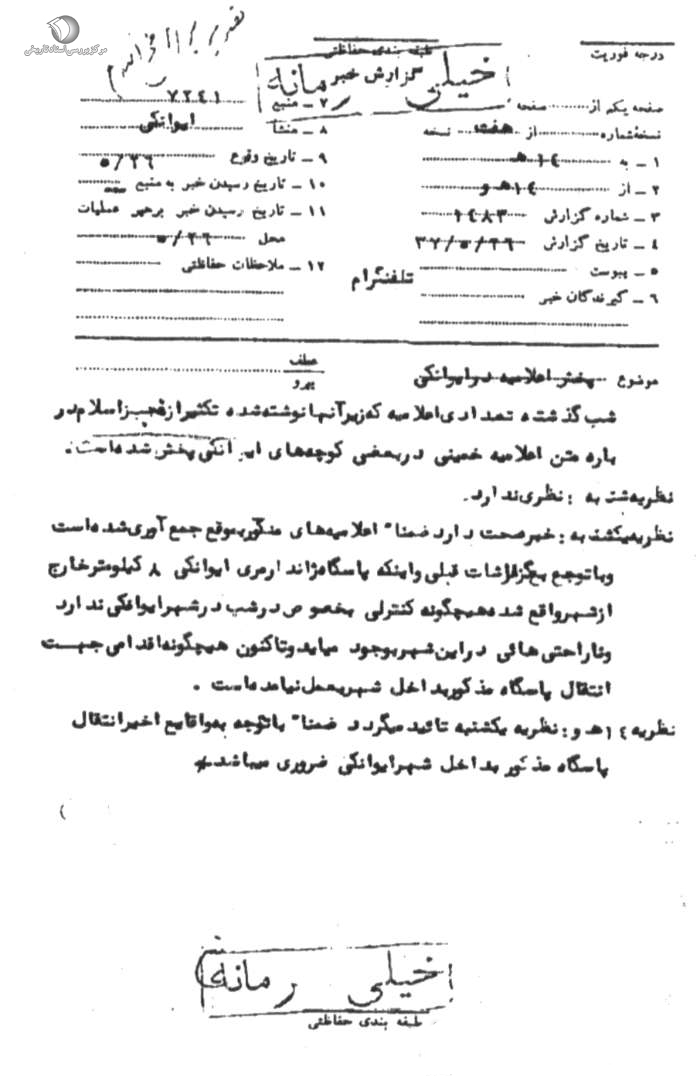 مرکز بررسی اسناد تاریخی
درجه فوریت
طبقه بندی حفاظتی
خیلی محرمانه
گزارش خبر
صفحه یکم از صفحه
نسخه شماره از هفت نسخه
۱ ـ به ۱۴ هـ
۲ ـ از ۱۴ هـ و
۳ ـ شماره گزارش ۱۴۸۳
۴ ـ تاریخ گزارش ۳۷/۵/۲۶
۵ ـ پیوست
۶ ـ گیرندگان خبر
۷ ـ منبع ۷۲۴۱
۸ ـ منشأ ایوانکی
۹ ـ تاریخ وقوع ۵/۲۶
۱۰ ـ تاریخ رسیدن خبر به منبع
۱۱ ـ تاریخ رسیدن خبر برهبر عملیات
محل ۵/۲۶
۱۲ ـ ملاحظات حفاظتی
تلفنگرام
موضوع پخش اعلامیه در ایوانکی
عطف
پیرو
شب گذشته تعدادی اعلامیه که زیر آنها نوشته شده تکثیر از اسلام در
باره متن اعلامیه خمینی در بعضی کوچه های ایوانکی پخش شده است.
نظریه شنبه : نظری ندارد.
نظریه یکشنبه : خبر صحت دارد ضمنا" اعلامیه های مذکور بموقع جمع آوری شده است
و با توجع بگزارشات قبلی و اینکه پاسگاه ژاندارمری ایوانکی ۸ کیلومتر خارج
از شهر واقع شده هیچگونه کنترلی بخصوص در شب در شهر ایوانکی ندارد
و ناراحتی هائی در این شهر بوجود میاید و تاکنون هیچگونه اقدامی جهت
انتقال پاسگاه مذکور بداخل شهر بعمل نیامده است .
نظریه ۱۴ هـ و : نظریه یکشنبه تائید میگردد ضمنا" با توجه به وقایع اخیر انتقال
پاسگاه مذکور بداخل شهر ایوانکی ضروری میباشد
خیلی محرمانه
طبقه بندی حفاظتی